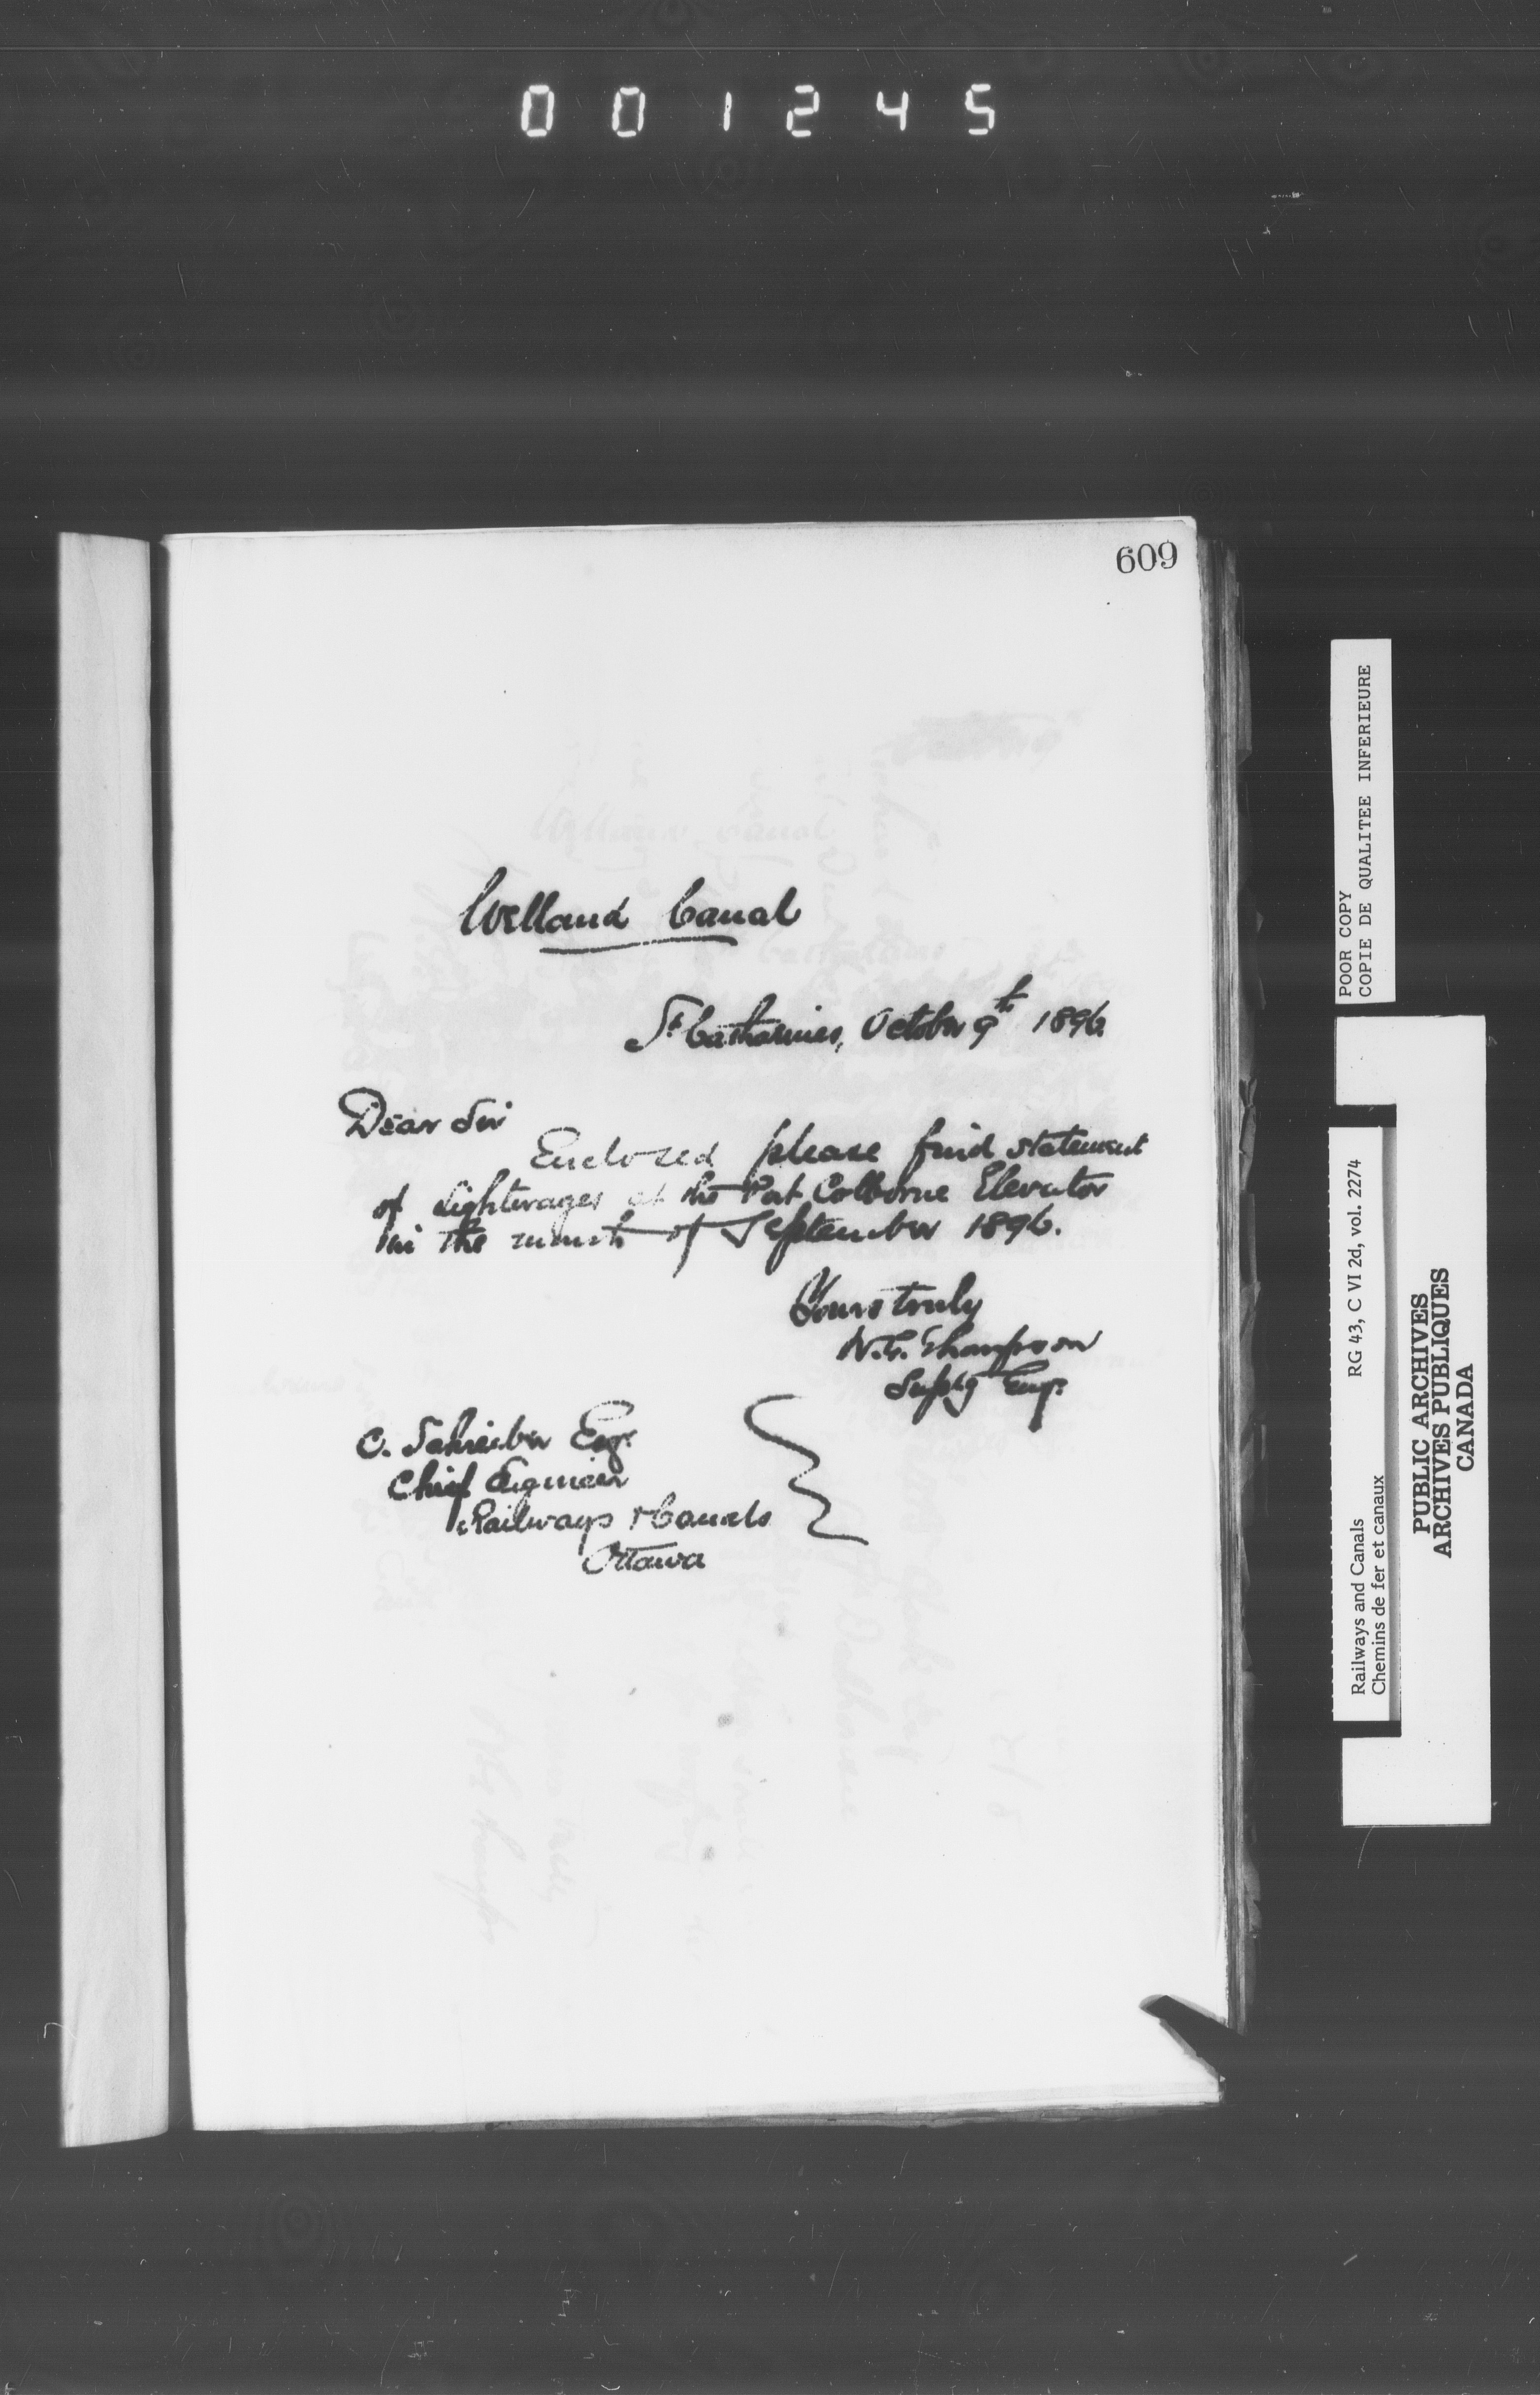 001245
609
Welland Canal
St Catharines, October 9th 1896
Dear Sir
Enclosed please find statement
of Lighterages at the Port Colborne Elevator
in the month of September 1896.
Yours truly
W.G. Thompson
Suptg Engr.
C. Schreiber Esqr.
Chief Engineer
Railways & Canals
Ottawa
POOR COPY
COPIE DE QUALITEE INFERIEURE
Railways and Canals RG 43, C VI 2d, vol. 2274
Chemins de fer et canaux
PUBLIC ARCHIVES
ARCHIVES PUBLIQUES
CANADA